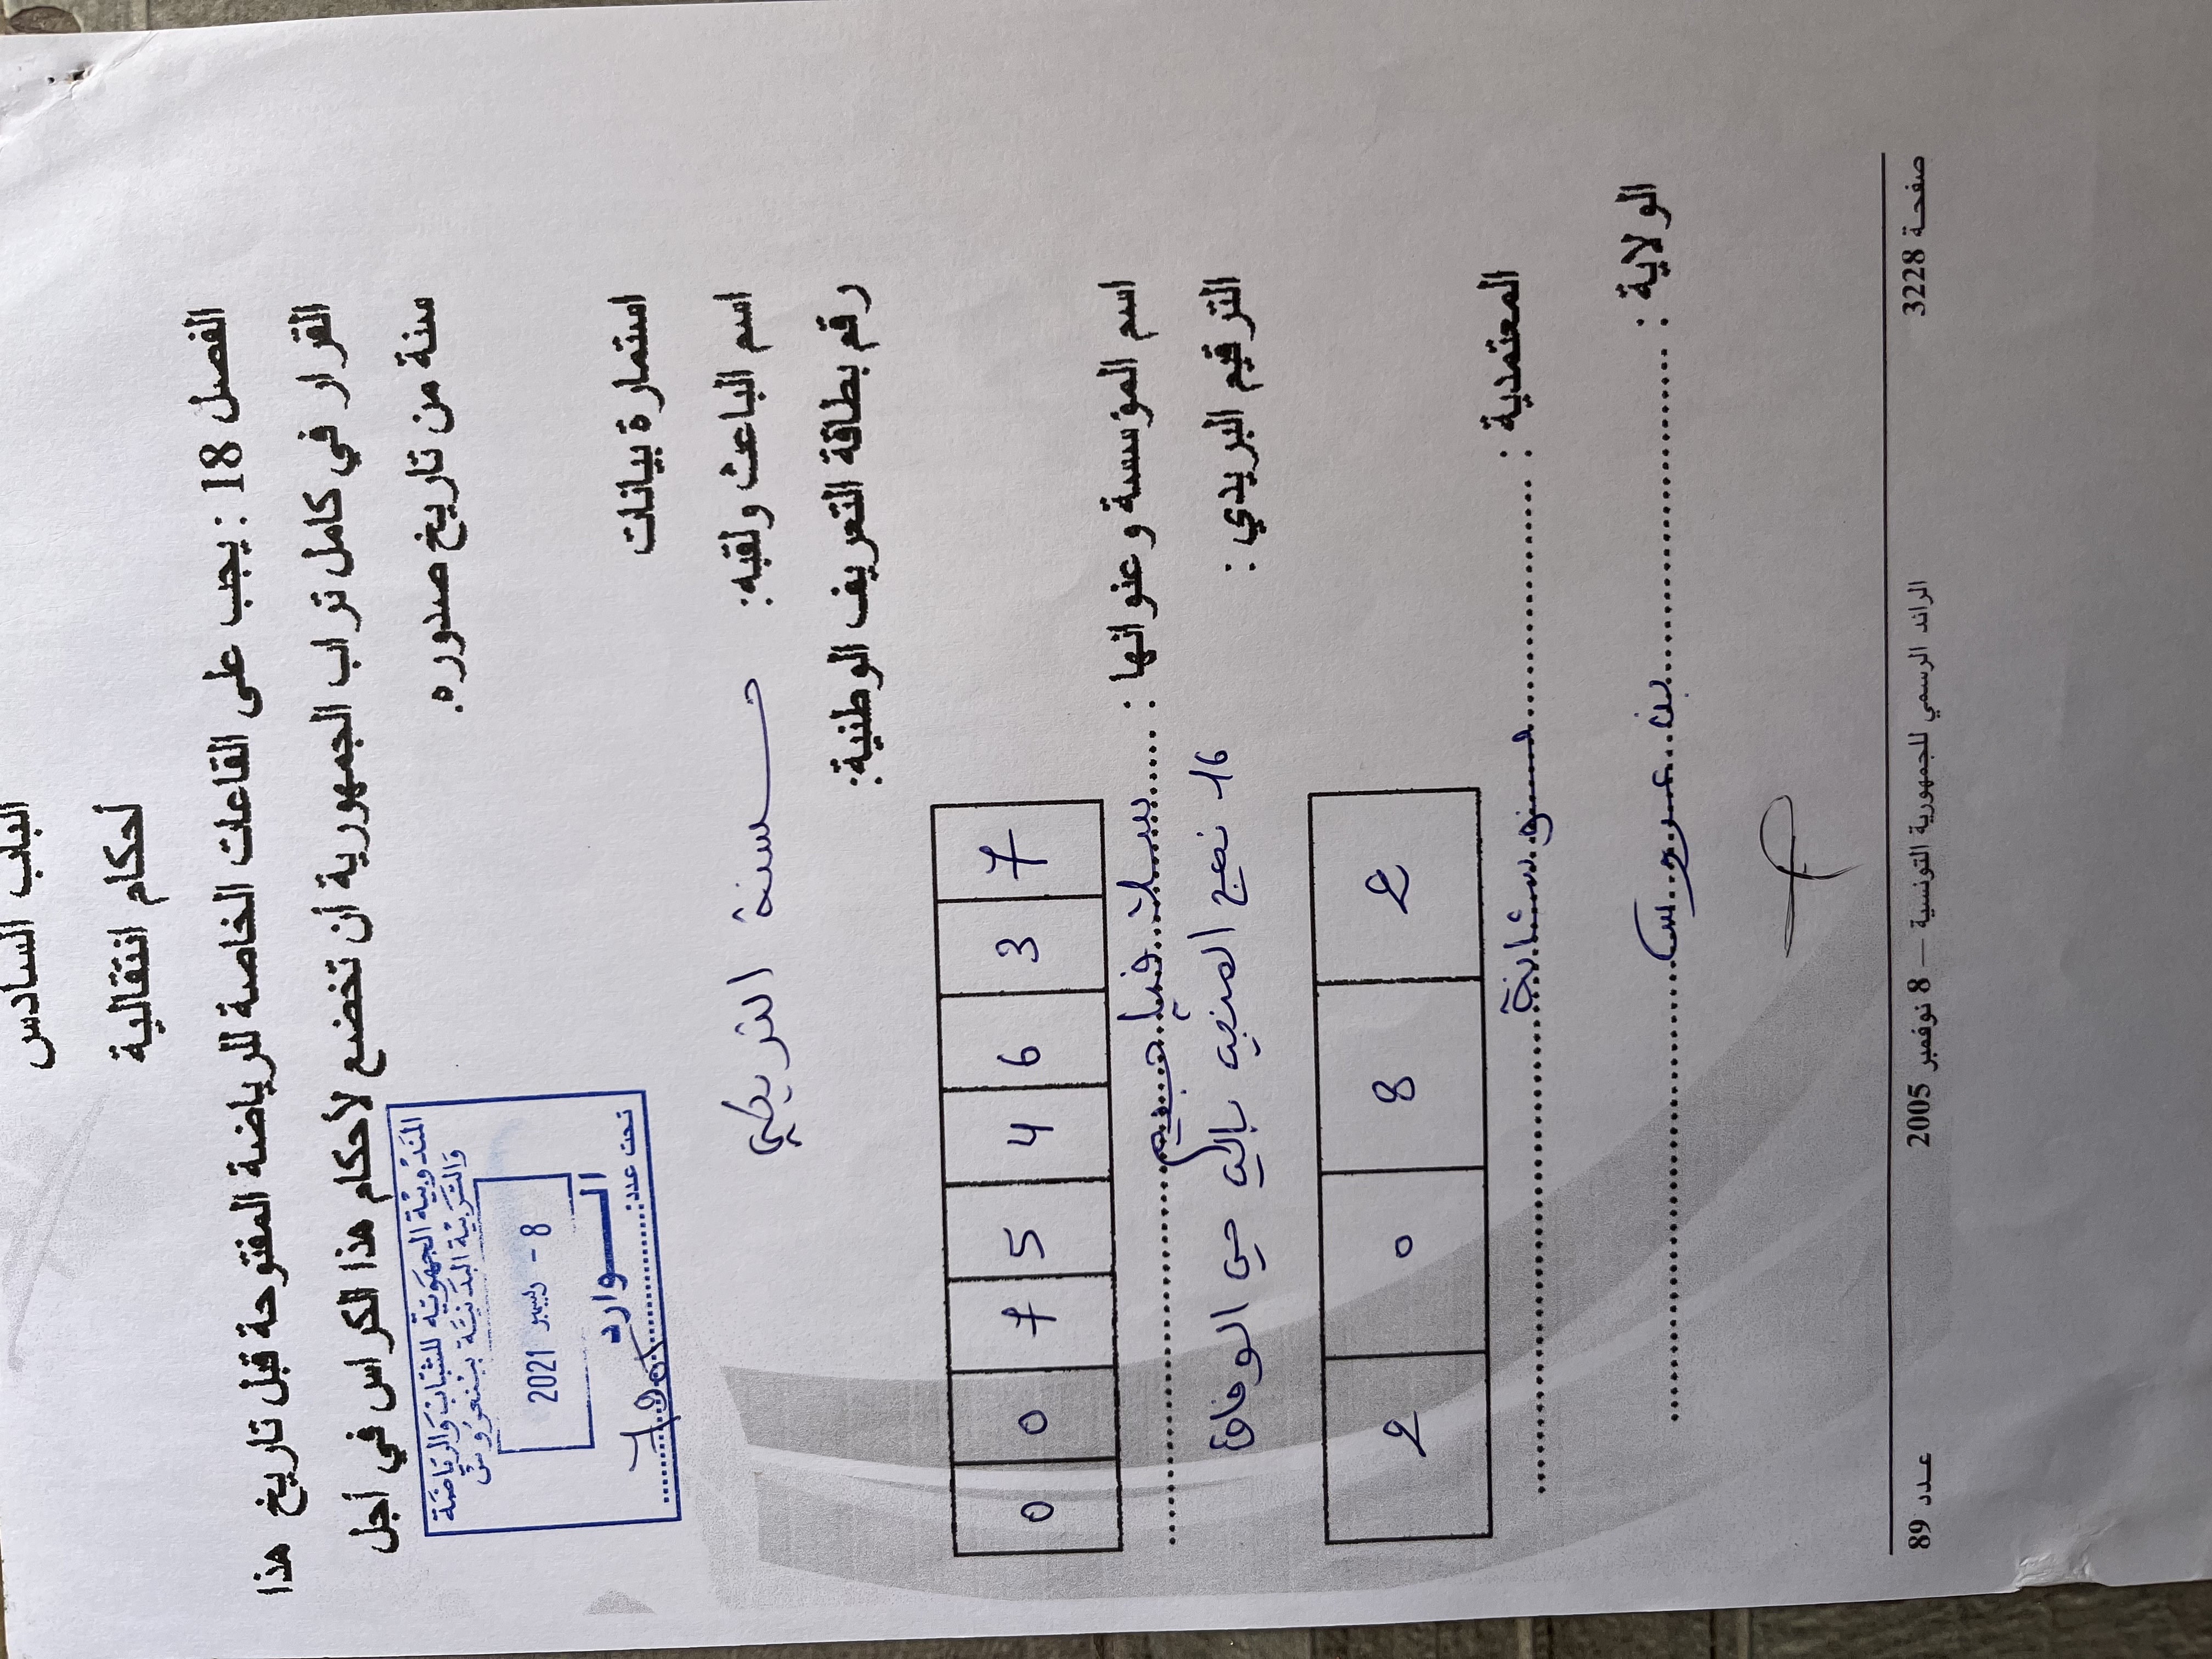 الباب السادس
أحكام انتقالية
الفصل 18 : يجب على القاعات الخاصة للرياضة المفتوحة قبل تاريخ هذا
القرار في كامل تراب الجمهورية أن تخضع لأحكام هذا الكراس في أجل
سنة من تاريخ صدوره.
المندوبية الجهوية للشباب والرياضة
والتربية البدنية ببنعروس
8 - ديسمبر 2021
الوارد
تحت عدد:
استمارة بيانات
اسم الباعث ولقبه: حسنة التريكي
رقم بطاقة التعريف الوطنية:
0 0 7 5 4 6 3 7
اسم المؤسسة وعنوانها : جيم
16 نهج حي الوفاق
الترقيم البريدي :
2 0 8 2
المعتمدية : فوشانة
الولاية : بن عروس
صفحة 3228 الرائد الرسمي للجمهورية التونسية — 8 نوفمبر 2005 عدد 89